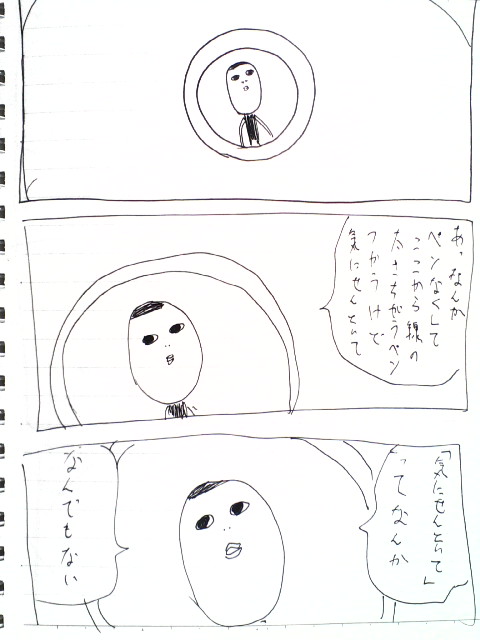 あっなんか
ペンなくして
ここから線の
太さちがうペン
つかうけど
気にせんといて
「気にせんといて」
ってなんか
なんでもない